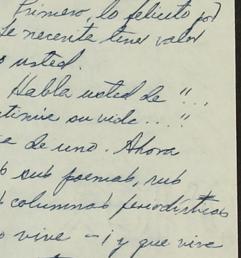 Primero, lo felicito por
se necesita tener valor
usted.
Habla usted de "...
su vida...."
de uno. Ahora
sus poemas, sus
columnas periodísticas
vive – ¡y que viva